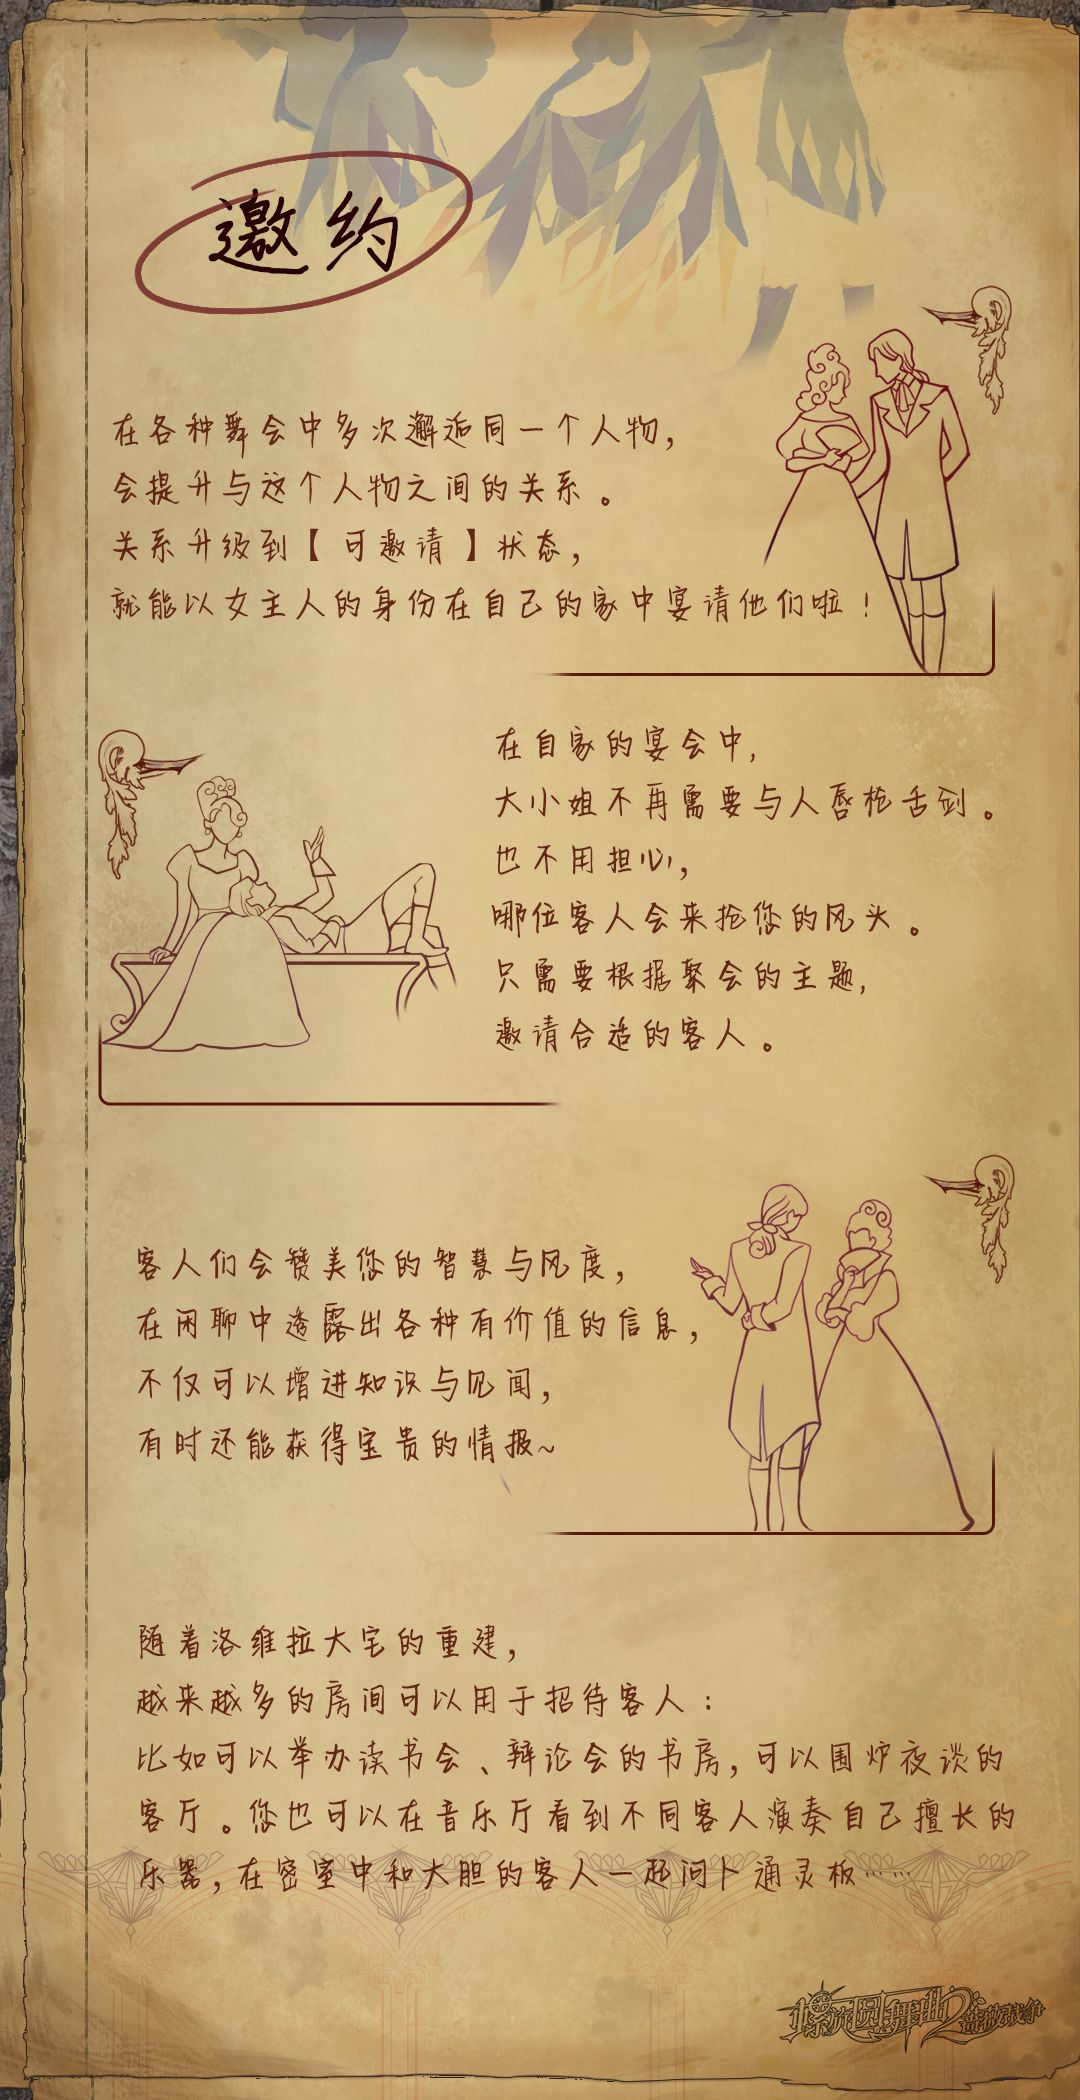 邀约
在各种舞会中多次邂逅同一个人物，
会提升与这个人物之间的关系。
关系升级到【可邀请】状态，
就能以女主人的身份在自己的家中宴请他们啦！
在自家的宴会中，
大小姐不再需要与人唇枪舌剑。
也不用担心，
哪位客人会来抢您的风头。
只需要根据聚会的主题，
邀请合适的客人。
客人们会赞美您的智慧与风度，
在闲聊中透露出各种有价值的信息，
不仅可以增进知识与见闻，
有时还能获得宝贵的情报~
随着洛维拉大宅的重建，
越来越多的房间可以用于招待客人：
比如可以举办读书会、辩论会的书房，可以围炉夜谈的
客厅。您也可以在音乐厅看到不同客人演奏自己擅长的
乐器，在密室中和大胆的客人一起问卜通灵板……
螺旋圆舞曲2蔷薇战争